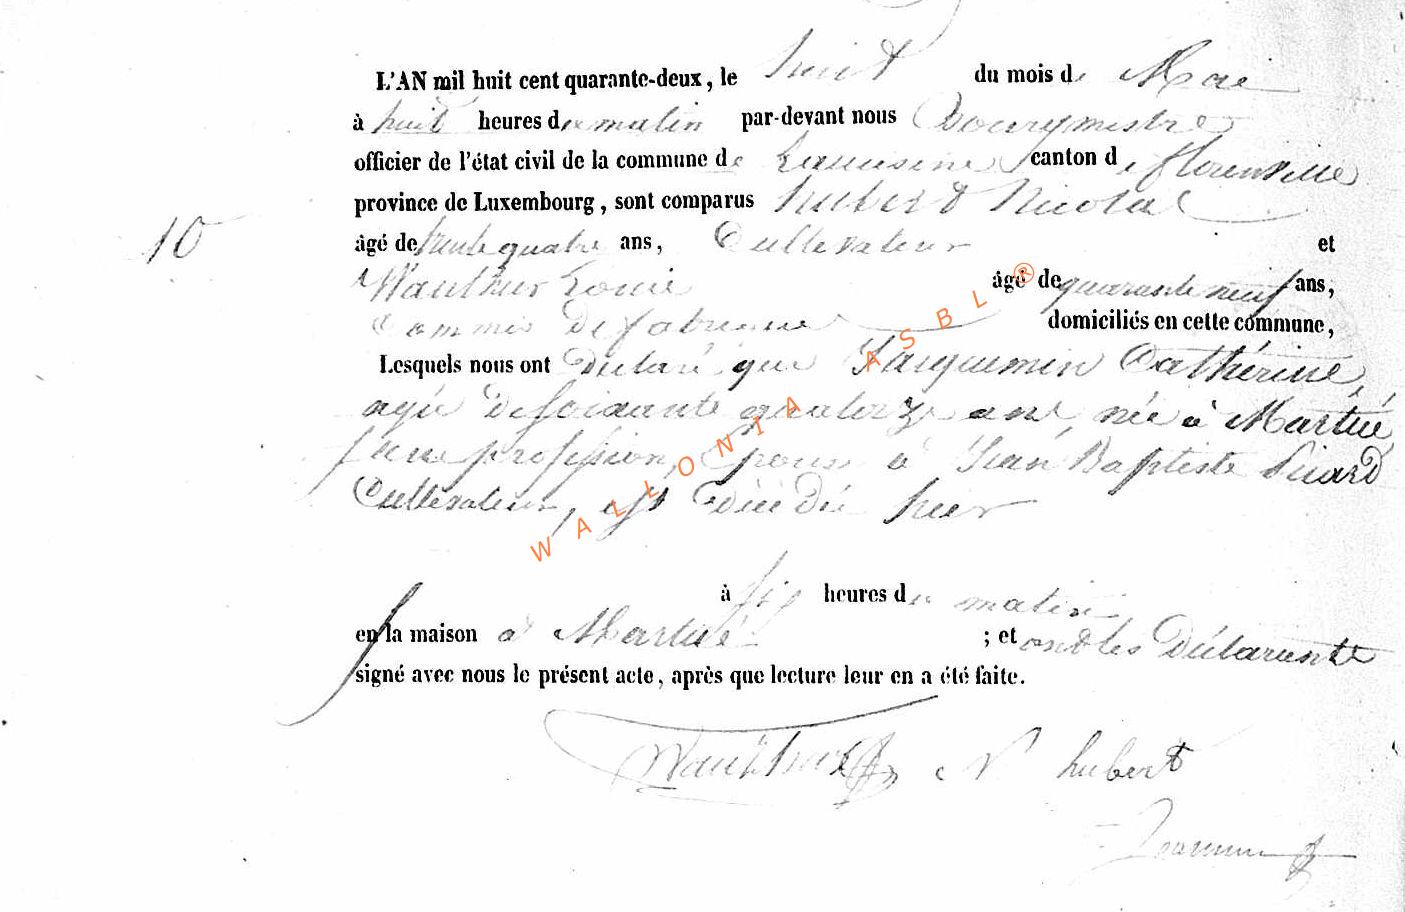 L'AN mil huit cent quarante-deux, le huit du mois de Mai
à huit heures du matin par-devant nous Bourgmestre
officier de l'état civil de la commune de canton de florenville
province de Luxembourg, sont comparus hubert Nicolas
10 âgé de trente quatre ans, Cultivateur et
Wauthier Louis âgé de quarante neuf ans,
Commis de fabrique domiciliés en cette commune,
Lesquels nous ont Déclaré que Jacquemin Cathérine,
agée de soixante quatorze ans, née à Martué,
sans profession, Epouse à Jean Baptiste
Cultivateur, est Décédée hier
à six heures du matin
en la maison à Martué ; et ont les Déclarants
signé avec nous le présent acte, après que lecture leur en a été faite.
N hubert
WALLONIA ASBL ®